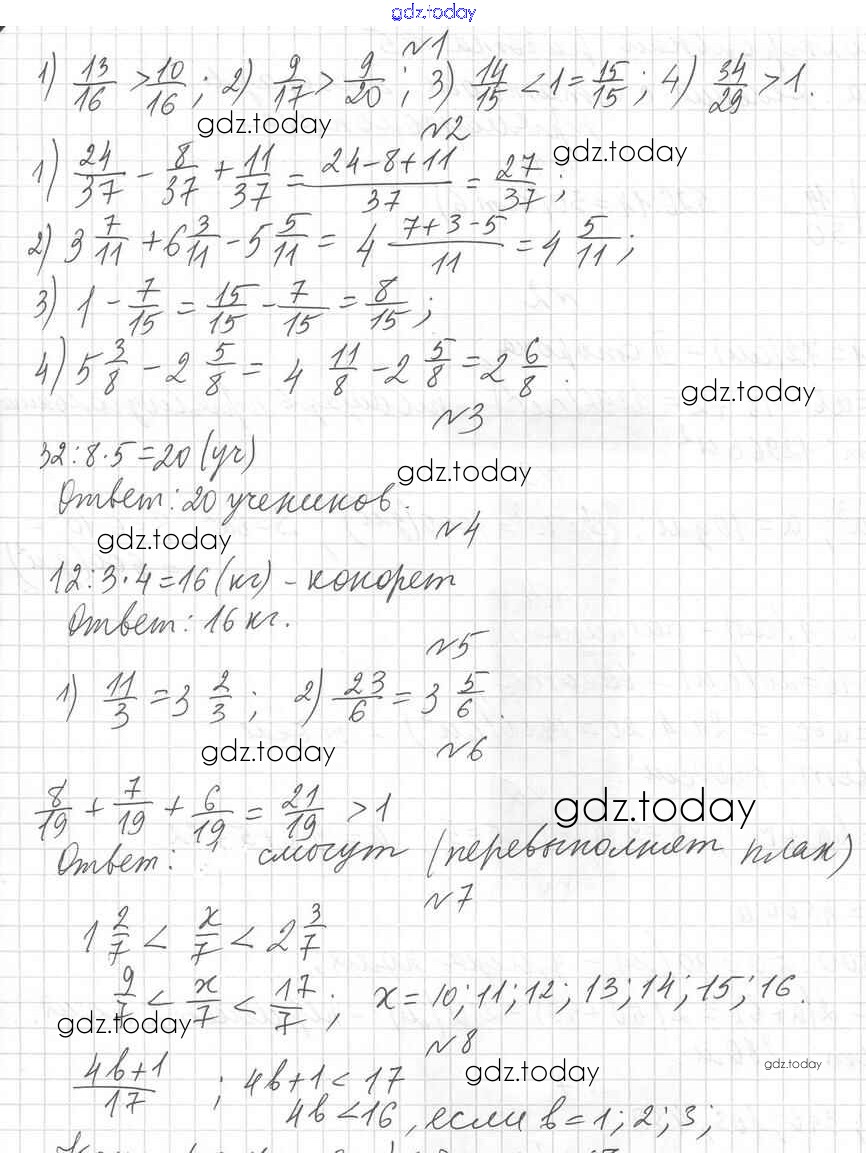 gdz.today
№1
1) 13/16 > 10/16 ; 2) 9/17 > 9/20 ; 3) 14/15 < 1 = 15/15 ; 4) 34/29 > 1.
gdz.today
№2
gdz.today
1) 24/37 - 8/37 + 11/37 = (24-8+11)/37 = 27/37 ;
2) 3 7/11 + 6 3/11 - 5 5/11 = 4 (7+3-5)/11 = 4 5/11 ;
3) 1 - 7/15 = 15/15 - 7/15 = 8/15 ;
4) 5 3/8 - 2 5/8 = 4 11/8 - 2 5/8 = 2 6/8.
gdz.today
№3
32:8·5=20 (уч)
gdz.today
Ответ: 20 учеников.
№4
gdz.today
12:3·4=16 (кг) - конфрет
Ответ: 16 кг.
№5
1) 11/3 = 3 2/3 ; 2) 23/6 = 3 5/6.
gdz.today
№6
8/19 + 7/19 + 6/19 = 21/19 > 1
gdz.today
Ответ: смогут (перевыполняет план)
№7
1 2/7 < x/7 < 2 3/7
9/7 < x/7 < 17/7 ; x = 10; 11; 12; 13; 14; 15; 16.
gdz.today
№8
gdz.today
gdz.today
(4b+1)/17 ; 4b+1 < 17
4b < 16, если b = 1; 2; 3;